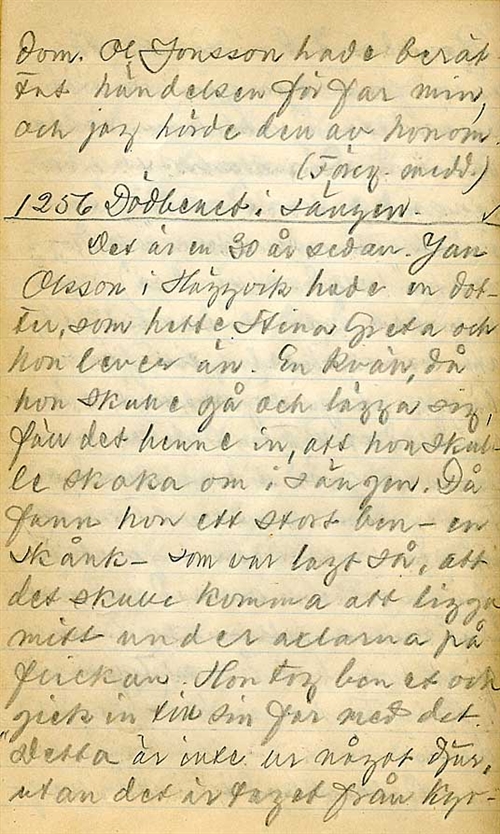 dom. Ol Jonsson hade berät-
tat händelsen för far min,
och jag hörde den av honom.
(Föreg. medd.)
1256 Dödbenet i sängen.
Det är en 30 år sedan. Jan
Olsson i Häggvik hade en dot-
ter, som hette Stina Greta och
hon lever än. En kväll, då
hon skulle gå och lägga sig,
föll det henne in, att hon skul-
le skaka om i sängen. Då
fann hon ett stort ben – en
skånk – som var lagt så, att
det skulle komma att ligga
mitt under axlarna på
flickan. Hon tog benet och
gick in till sin far med det.
"Detta är inte ur något djur,
utan det är taget från kyr-